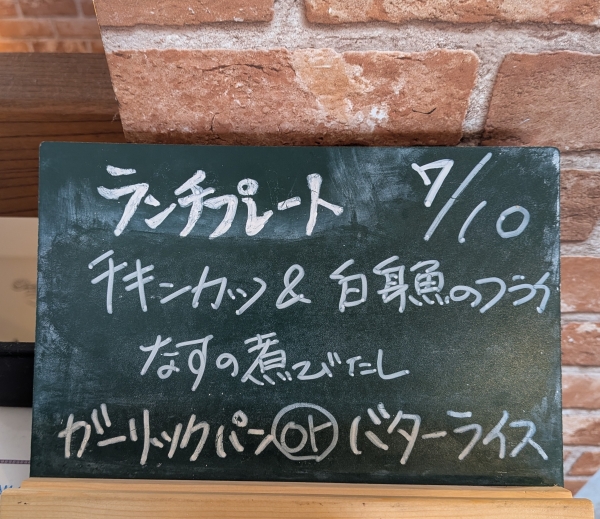 ランチプレート 7/10
チキンカツ & 白身魚のフライ
なすの煮びたし
ガーリックパン or バターライス